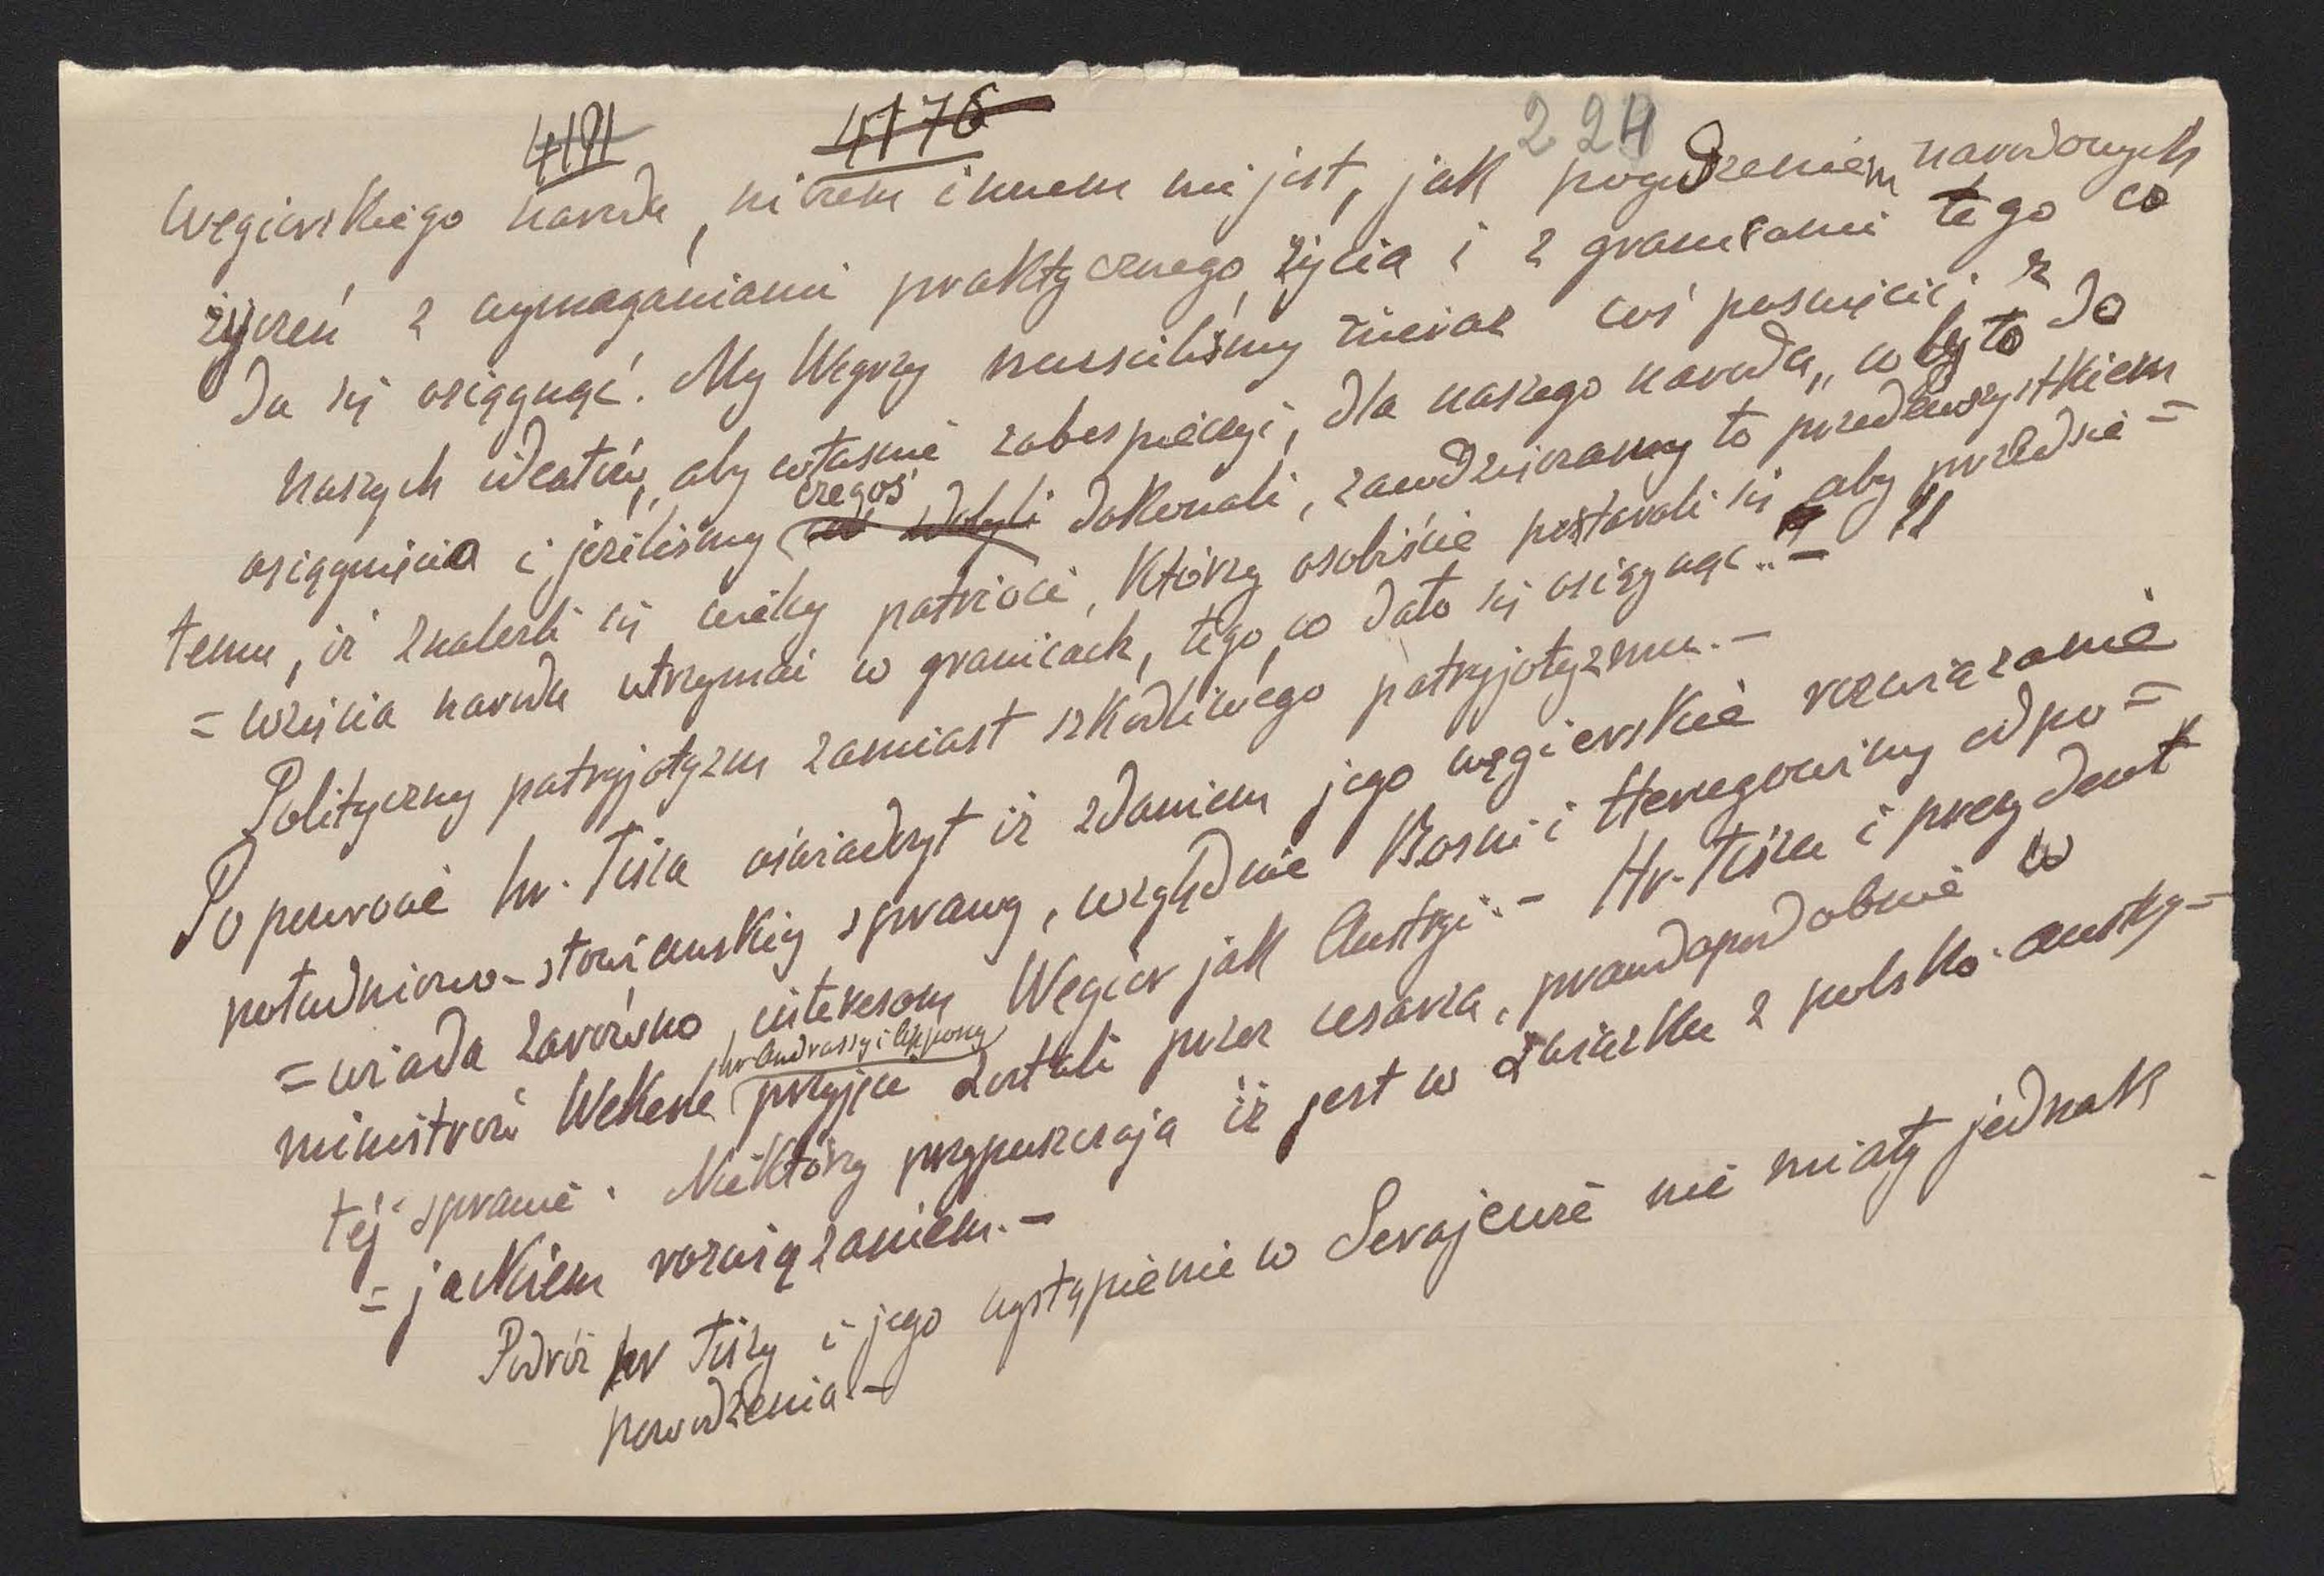 4191 4176 224
węgierskiego narodu, niczem innem nie jest, jak pogodzeniem narodowych
życzeń z wymaganiami praktycznego życia i z granicami tego co
da się osiągnąć. My Węgrzy musieliśmy nieraz coś poswięcić z
naszych ideałów, aby własnie zabespieczyć, dla naszego narodu, co było do
osiągnięcia i jeżeliśmy czegoś dokonali, zawdzięczamy to przedewszystkiem
temu, iż znaleźli się wielcy patrioci, którzy osobiście postarali się aby przedsie=
=wzięcia narodu utrzymać w granicach, tego, co dało się osiągnąć.. — "
Polityczny patryjotyzm zamiast szkodliwego patryjotyzmu. —
Po powrocie hr. Tisza oświadczył iż zdaniem jego węgierskie rozwiązanie
południowo-słowiańskiej sprawy, względnie Bosni i Hercegowiny odpo=
=wiada zarówno interesom Węgier jak Austryi. — Hr. Tisza i prezydent
ministrów Wekerle hr Andrassy i Appony przyjęci zostali przez cesarza, prawdopodobnie w
tej sprawie. Niektórzy przypuszczaja iż jest w związku z polsko-austry=
=jackiem rozwiązaniem. —
Podróż hr Tiszy i jego wystąpienie w Serajewie nie miały jednak
powodzenia. —